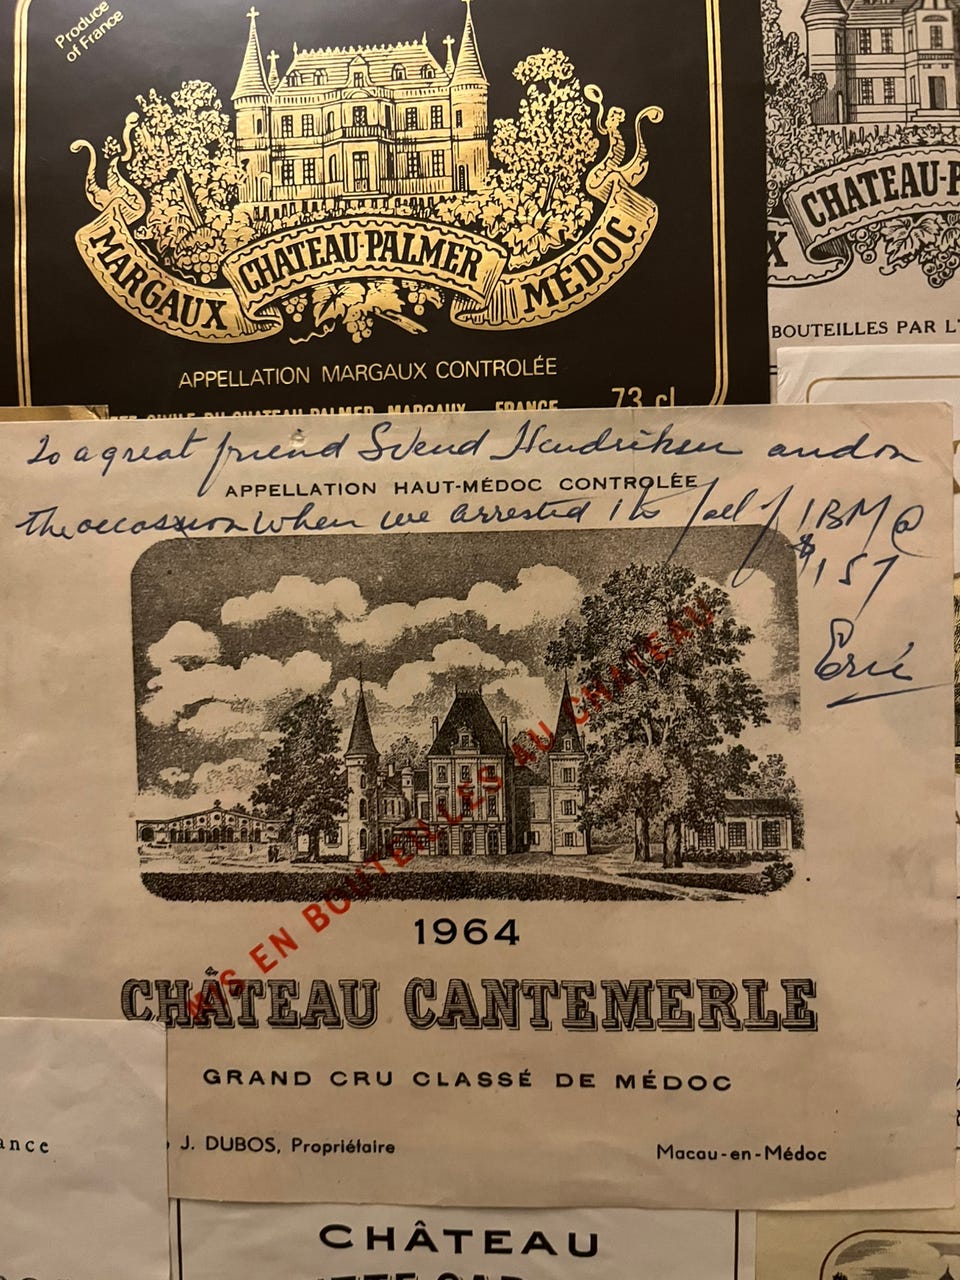 Produce
of France
MARGAUX CHATEAU-PALMER MÉDOC
APPELLATION MARGAUX CONTROLÉE
CIVILE DU CHATEAU PALMER MARGAUX FRANCE
73 cl
CHATEAU-P
X
BOUTEILLES PAR L'
To a great friend Svend Hendriksen and on
APPELLATION HAUT-MÉDOC CONTROLÉE
the occassion when we arrested the fall of IBM @
$157
Eric
MIS EN BOUTEILLES AU CHATEAU
1964
CHÂTEAU CANTEMERLE
GRAND CRU CLASSÉ DE MÉDOC
J. DUBOS, Propriétaire
Macau-en-Médoc
ance
CHÂTEAU